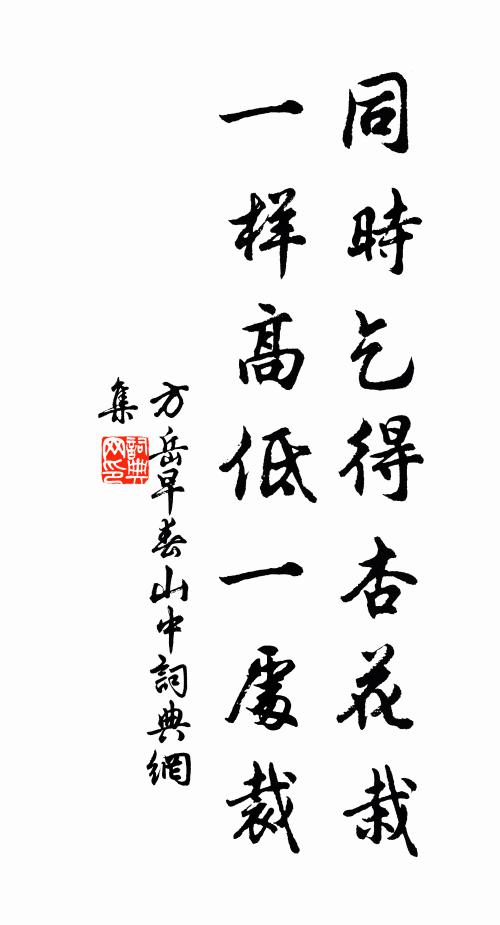 同時乞得杏花栽
一样高低一處裁
方岳早春山中詞典網
集
詞典
网印